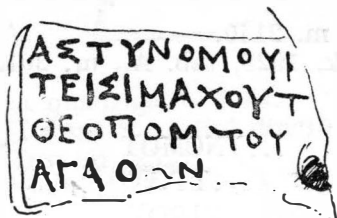 ΑΣΤΥΝΟΜΟΥΙ
ΤΕΙΣΙΜΑΧΟΥΤ
ΘΕΟΠΟΜΤΟΥ
ΑΓΑΘΩΝ